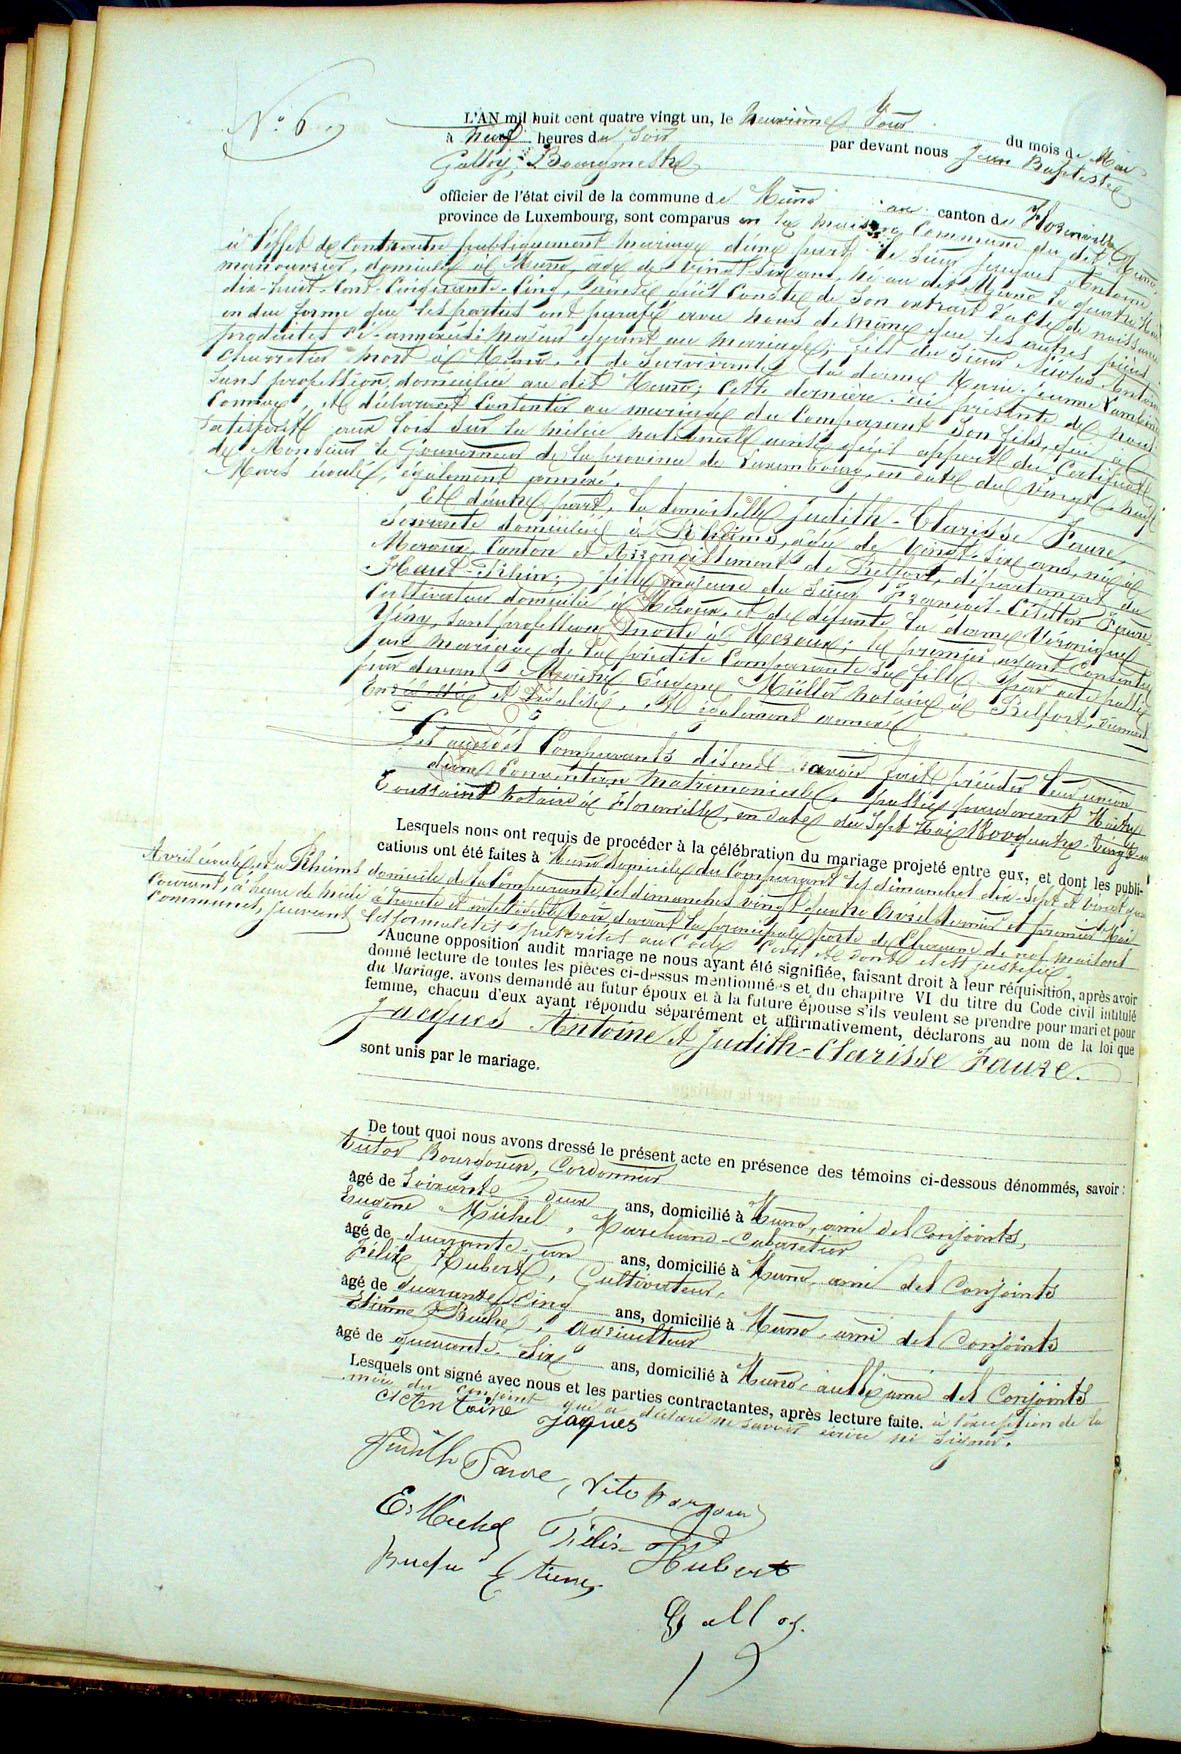 N° 6
L'AN mil huit cent quatre vingt un, le neuvième Jour du mois de Mai
à neuf heures du soir par devant nous Jean Baptiste
Galloy, Bourgmestre
officier de l'état civil de la commune de Muno au canton de Florenville
province de Luxembourg, sont comparus en la maison Commune du dit Muno
à l'effet de Contracter publiquement mariage d'une part le Sieur Jacques Antoine
manouvrier, domicilié à Muno, âgé de vingt-six ans, né au dit Muno le quatre
dix-huit-Cent-Cinquante-Cinq, ainsi qu'il Conste de Son extrait d'acte de naissance
en due forme que les parties ont parafé avec nous de même que les autres pièces
produites ci-annexées; majeur quant au mariage; fils du Sieur Nicolas Antoine
Charretier mort à Muno et de Survivante la dame Marie Jeanne Lambin
Sans profession, domiciliée au dit Muno; Cette dernière ici présente de nous
Connue, et déclarant Consentir au mariage du Comparant Son fils, que a
Satisfait aux lois sur la milice nationale ainsi qu'il appert du Certificat
de Monsieur le Gouverneur de la province de Luxembourg, en date du vingt neuf
Mars écoulé, également annexé.
Et d'autre part, la demoiselle Judith-Clarisse Faure,
Servante domiciliée à Rheims, âgée de vingt-six ans, née à
Meroux, Canton et Arrondissement de Belfort, département du
Haut-Rhin; fille majeure du Sieur François-Célestin Faure
Cultivateur domicilié à Meroux, et de défunte la dame Véronique
Sans profession morte à Meroux; le premier ayant Consenti
au mariage de la prédite Comparante sa fille par acte passé
par devant Maître Eugène Müller notaire à Belfort, dûment
Enregistré et Légalisé, et également annexé
Les susdits Comparants disent avoir fait précéder leur union
d'une Convention matrimoniale, passée pardevant Maître
Toussaint Notaire à Florenville, en date du Sept Mai
Lesquels nous ont requis de procéder à la célébration du mariage projeté entre eux, et dont les publi-
cations ont été faites à Muno domicile du Comparant les dimanches dix-sept et vingt quatre
Avril écoulé, et à Rheims domicile de la Comparante, les dimanches vingt quatre Avril dernier et premier Mai
Courant, à heure de midi à haute et intelligible voix, devant la principale porte de Chacune de nos maisons
Communes, suivant les formalités prescrites au Code Civil dont il est justifié.
Aucune opposition audit mariage ne nous ayant été signifiée, faisant droit à leur réquisition, après avoir
donné lecture de toutes les pièces ci-dessus mentionnées et du chapitre VI du titre du Code civil intitulé
du Mariage, avons demandé au futur époux et à la future épouse s'ils veulent se prendre pour mari et pour
femme, chacun d'eux ayant répondu séparément et affirmativement, déclarons au nom de la loi que
Jacques Antoine et Judith-Clarisse Faure.
sont unis par le mariage.
De tout quoi nous avons dressé le présent acte en présence des témoins ci-dessous dénommés, savoir :
Victor Bourgouin, Cordonnier
âgé de Soixante deux ans, domicilié à Muno, ami des Conjoints,
Eugène Michel, Marchand-Cabaretier
âgé de quarante-un ans, domicilié à Muno, ami des Conjoints
Félix Hubert, Cultivateur,
âgé de quarante cinq ans, domicilié à Muno, ami des Conjoints
Etienne Buché, Agriculteur
âgé de quarante-six ans, domicilié à Muno, aussi ami des Conjoints
Lesquels ont signé avec nous et les parties contractantes, après lecture faite. à l'exception de la
mère du conjoint qui a déclaré ne savoir écrire ni signer.
Antoine Jaques
Judith Faure,
E. Michel Félix Hubert
Etienne
Galloy.